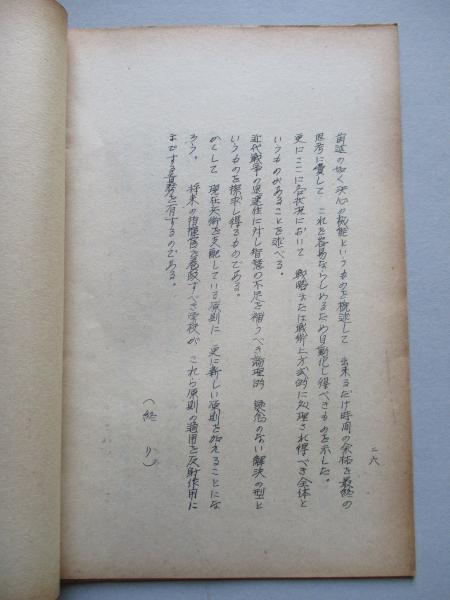 二六
前述の如く決心の機能というものを概述して 出来るだけ時間の余裕を最終の
思考に費して これを容易ならしめるため自動化し得べきものを示した。
更にここに各状況において 戦略または戦術上方式的に処理され得べき全体と
いうものがあることを述べる。
近代戦争の迅速性に対し智慧の不足を補うべき論理的 疑念のない解決の型と
いうものを探求し得るものである。
かくして 現在兵術を支配している原則に 更に新しい原則を加えることにな
ろう。 将来の指揮官を養成すべき学校が これら原則の適用を反射作用に
までする義務を有するのである。
（終り）